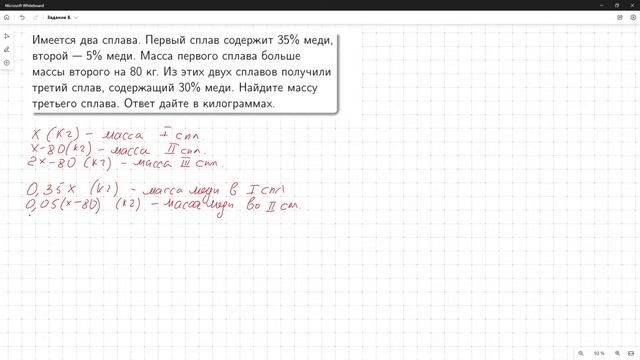 Microsoft Whiteboard
Задание 8.
Имеется два сплава. Первый сплав содержит 35% меди,
второй — 5% меди. Масса первого сплава больше
массы второго на 80 кг. Из этих двух сплавов получили
третий сплав, содержащий 30% меди. Найдите массу
третьего сплава. Ответ дайте в килограммах.
x (кг) – масса I спл.
x–80(кг) – масса II спл.
2x–80 (кг) – масса III спл.
0,35x (кг) – масса меди в I спл
0,05(x–80) (кг) – масса меди во II сп.
0,
93 %